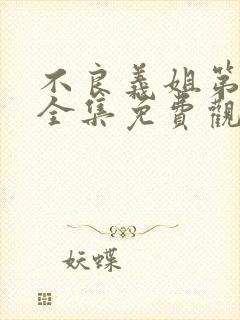 不良義姐第
全集免費觀
妖蝶